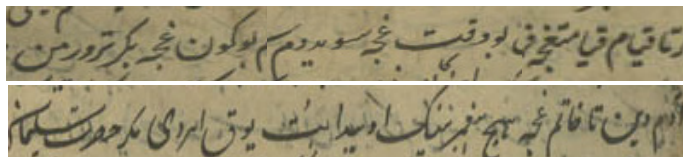 تا قیام قیامتغچه بو وقت غچه بو کون غچه بکر تورورمن
آدم دین تا خاتم غچه هیچ پیغمبرنینک اوییدا ایت یوق ایردی مکر حضرت سلیمان